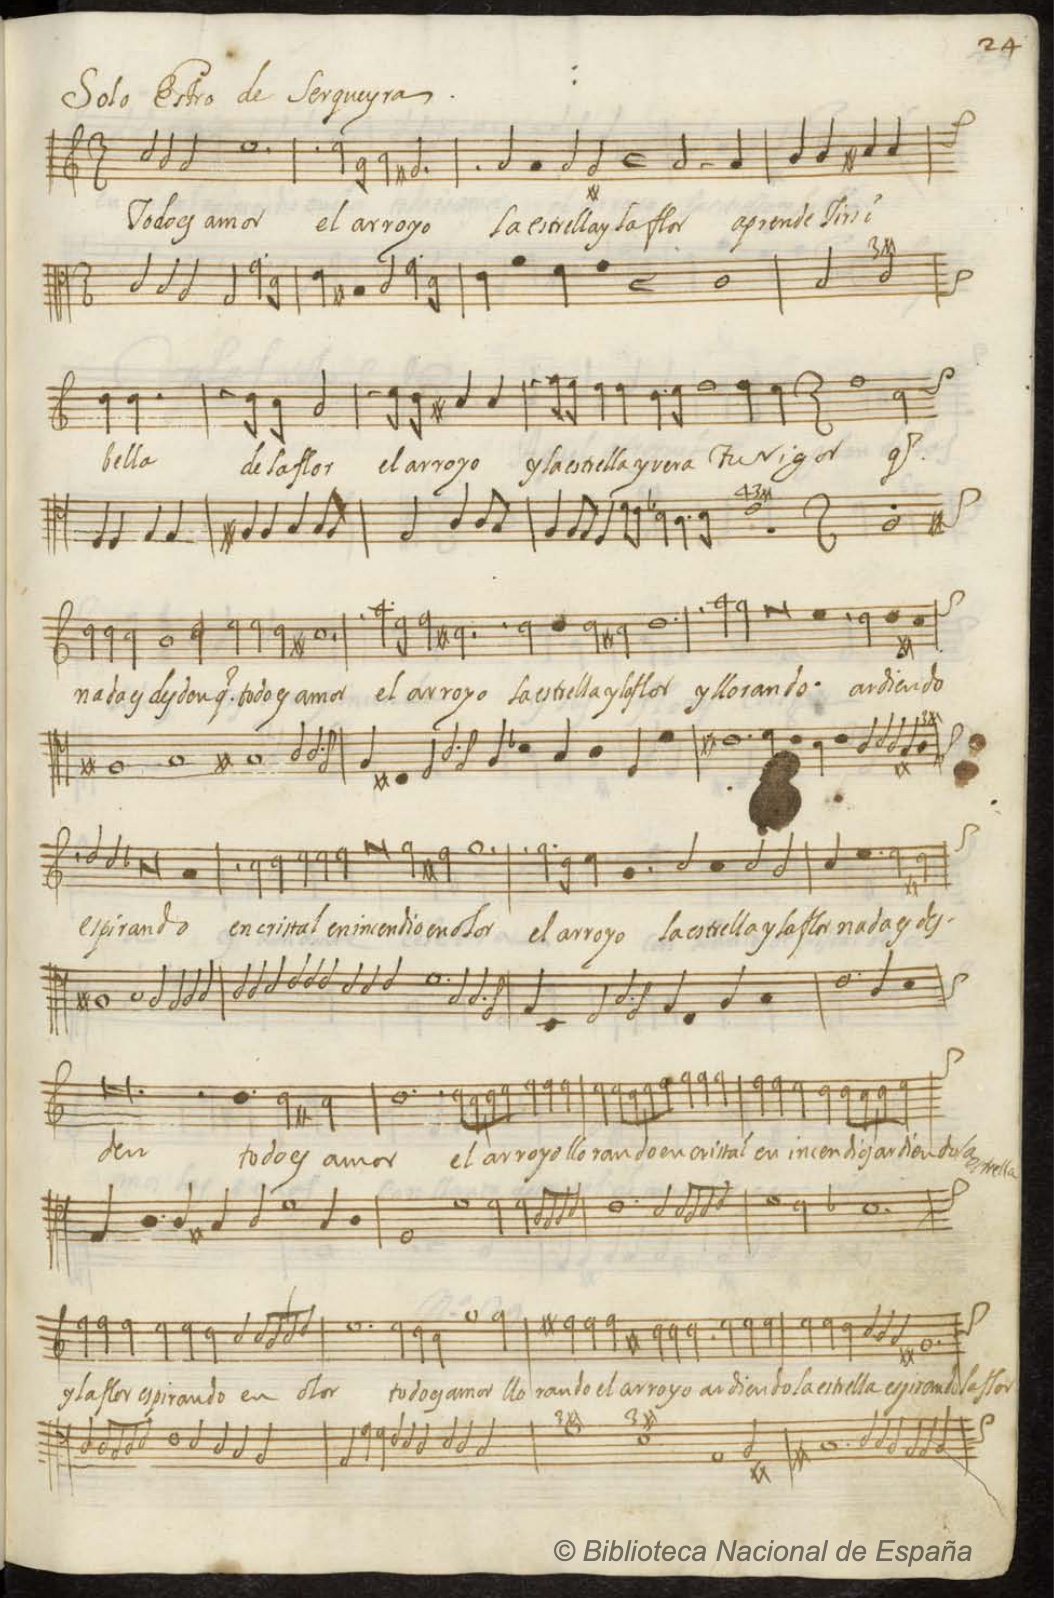 24
Solo Estro de Serqueyra
Todo es amor el arroyo la estrella y la flor aprende Tirsi
bella de la flor el arroyo y la estrella y vera tu Rigor q.
nada es desden q. todo es amor el arroyo la estrella y la flor y llorando ardiendo
espirando en cristal en incendio en olor el arroyo la estrella y la flor nada es des-
den todo es amor el arroyo llorando en cristal en incendio ardiendo la estrella
y la flor espirando en olor todo es amor llorando el arroyo ardiendo la estrella espirando la flor
© Biblioteca Nacional de España